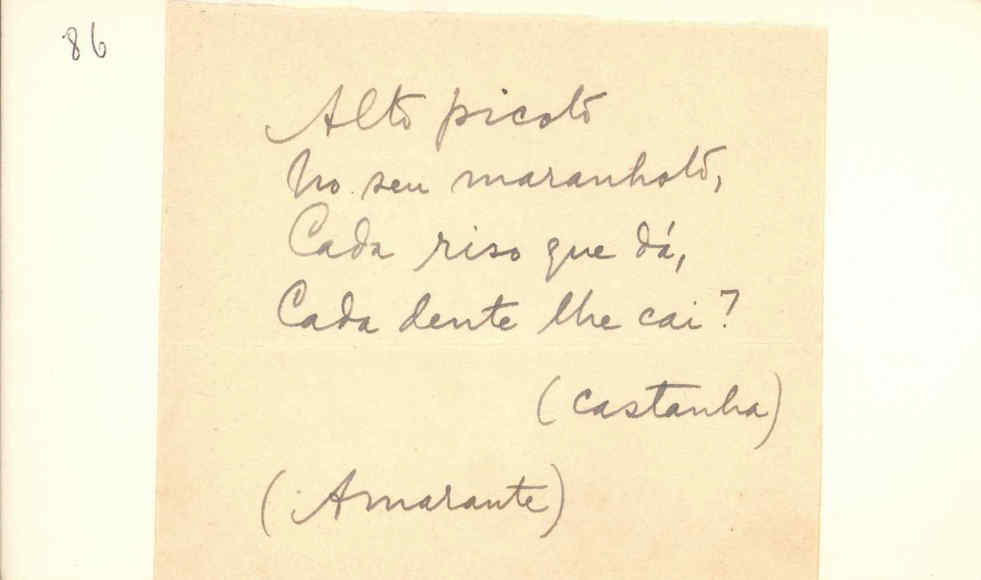 86
Alto picoto
No seu maranhoto,
Cada riso que dá,
Cada dente lhe cai?
(castanha)
(Amarante)